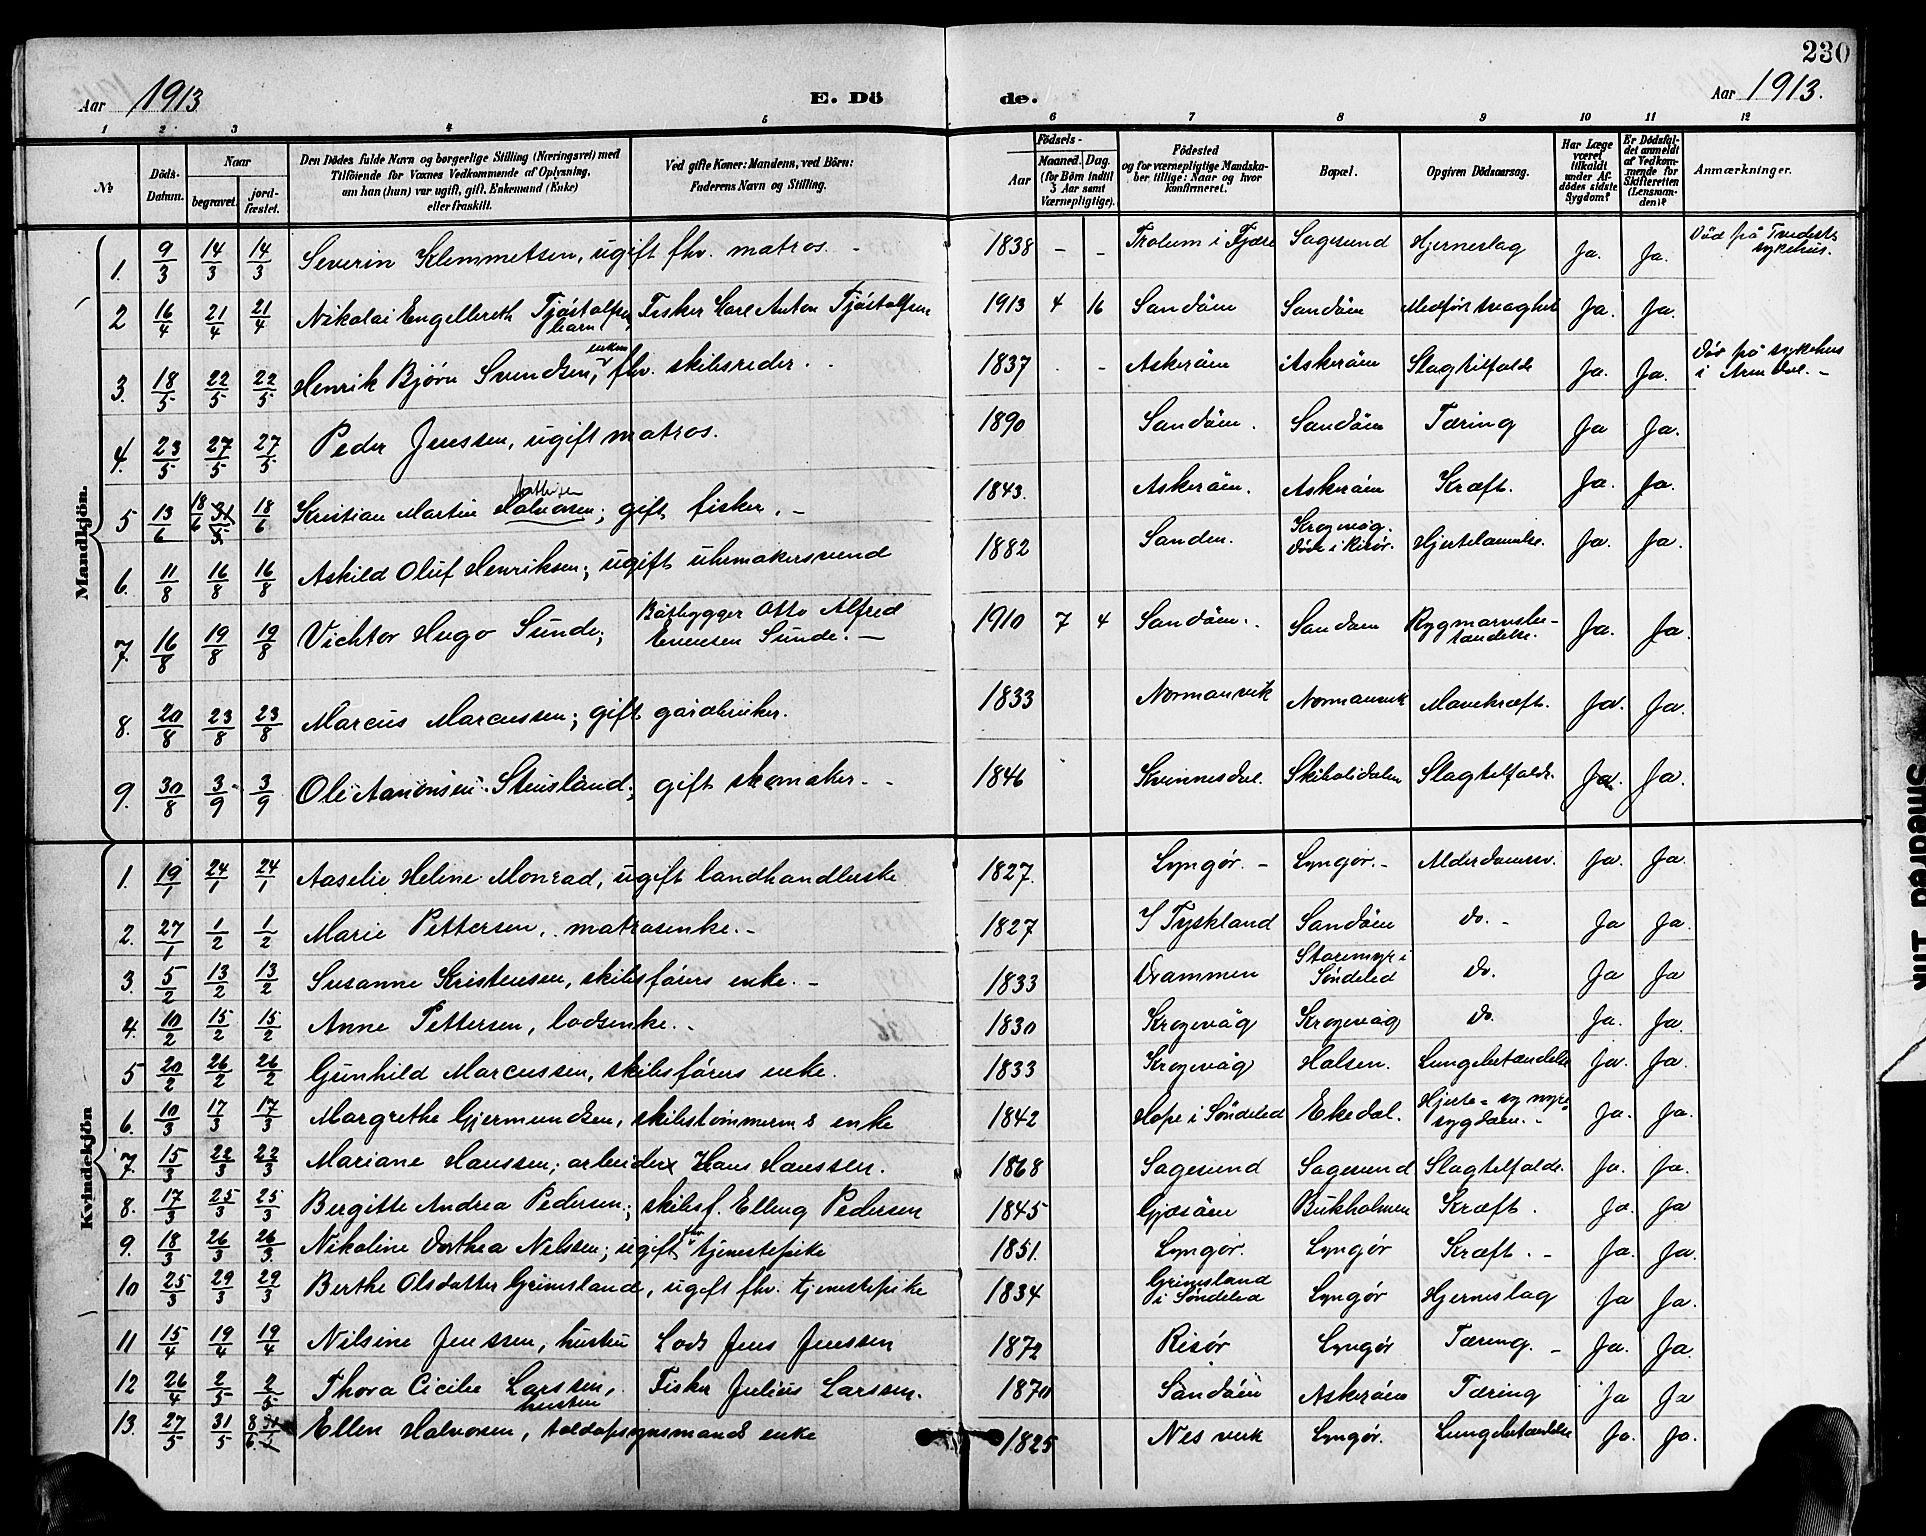 230
Aar 1913
E. Dö
de.
Aar 1913.
1 2 3 4 5 6 7 8 9 10 11 12
№
Döds-Datum.
Naar
begravet.
jord-fæstet.
Den Dödes fulde Navn og borgerlige Stilling (Næringsvei) med
Tilföiende for Voxnes Vedkommende af Oplysning,
om han (hun) var ugift, gift, Enkemand (Enke)
eller fraskilt.
Ved gifte Koner: Mandens, ved Börn:
Faderens Navn og Stilling.
Födsels-
Aar
Maaned. Dag.
(for Börn indtil
3 Aar samt
Værnepligtige).
Födested
og for værnepligtige Mandska-
ber tillige: Naar og hvor
konfirmeret.
Bopæl.
Opgiven Dödsaarsag.
Har Læge
været
tilkaldt
under Af-
dödes sidste
Sygdom?
Er Dödsfal-
det anmeldt
af Vedkom-
mende for
Skifteretten
(Lensman-
den)?
Anmærkninger.
Mandkjön.
1. 9/3 14/3 14/3 Severin Klemmetsen, ugift fhv. matros. - 1838 - - Trolum i Fjære Sagesund Hjerneslag Ja. Ja. Död på Tvedestr. sykehus.
2 16/4 21/4 21/4 Nikolai Engellereth Tjöstolfsen, barn Fisker Carl Anton Tjöstolfsen 1913 4 16 Sandöen Sandöen Medfört svaghet Ja. Ja.
3. 18/5 22/5 22/5 Henrik Björn Svendsen, enkem fhv. skibsreder. 1837 - Askeröen Askeröen Slagtilfælde Ja. Ja. Död på sykehus i Arendal. -
4. 23/5 27/5 27/5 Peder Jenssen, ugift matros. 1890 Sandöen. Sandöen Tæring Ja Ja.
5 13/6 18/6 31/5 18/6 Kristian Martin Halvorsen; gift fisker. - 1843. Askeröen. Askeröen Kræft. Ja. Ja.
6. 11/8 16/8 16/8 Askild Oluf Henriksen; ugift uhrmakersvend 1882 Sanden. Krogevåg. död i Risör. Hjertelammelse. Ja. Ja.
7. 16/8 19/8 19/8 Vichtor Hugo Sunde; Båtbygger Otto Alfred Evensen Sunde. - 1910 7 4 Sandöen. Sandöen Rygmarvsbe-tændelse. Ja. Ja.
8. 20/8 23/8 23/8 Marcus Marcussen; gift gårdbruker. 1833 Normanvik Normanvik Mavekræft. Ja. Ja.
9. 30/8 3/9 3/9 Ole Aanonsen Stensland; gift skomaker - 1846 Kvinnesdal. Skibolidalen Slagtilfælde. Ja. Ja.
Kvindekjön
1. 19/1 24/1 24/1 Aaselie Helene Monrad, ugift landhandlerske 1827. Lyngör. - Lyngör. - Alderdomssv. Ja. Ja.
2. 27/1 1/2 1/2 Marie Pettersen, matrosenke. - 1827 I Tyskland Sandöen do. - Ja Ja
3. 5/2 13/2 13/2 Susanne Kristensen, skibsförers enke. - 1833 Drammen Staremyr i Söndeled do. Ja Ja
4. 10/2 15/2 15/2 Anne Pettersen, lodsenke. 1830 Krogevåg Krogevåg do. Ja. Ja.
5 20/2 26/2 26/2 Gunhild Marcussen, skibsförers enke. 1833 Krogevåg Halsen. Lungebetændelse Ja. Ja.
6. 10/3 17/3 17/3 Margrethe Gjermundsen, skibstömmerm s enke 1842 Hope i Söndeled Ekedal. Hjerte- og nyre-sygdom. - Ja. Ja.
7. 15/3 22/3 22/3 Mariane Hanssen; arbeider Hans Hanssen. 1868 Sagesund Sagesund Slagtilfælde. Ja. Ja.
8. 17/3 25/3 25/3 Bergitte Andrea Pedersen; skibsf. Elling Pedersen 1845 Gjæsöen Bukholmen Kræft. Ja. Ja
9. 18/3 26/3 26/3. Nikoline Dorthea Nelssen; ugift fhv tjenestepike 1851. Lyngör. Lyngör Kræft. - Ja. Ja.
10 25/3 29/3 29/3 Berthe Olsdatter Grimsland, ugift fhv. tjenestepike 1834 Grimsland i Söndeled Lyngör Hjerneslag Ja Ja.
11 15/4 19/4 19/4 Nilsine Jenssen, hustru Lods Jens Jenssen 1872 Risör Lyngör Tæring. - Ja. Ja.
12 26/4 2/5 2/5 Thora Cicilie Larssen, hustru Fisker Julius Larssen. 1870 Sandöen Askeröen Tæring Ja Ja
13. 27/5 31/5 8/6 Ellen Halvorsen, toldopsynsmands enke 1825 Nes verk Lyngör. Lungebetændelse Ja. Ja.